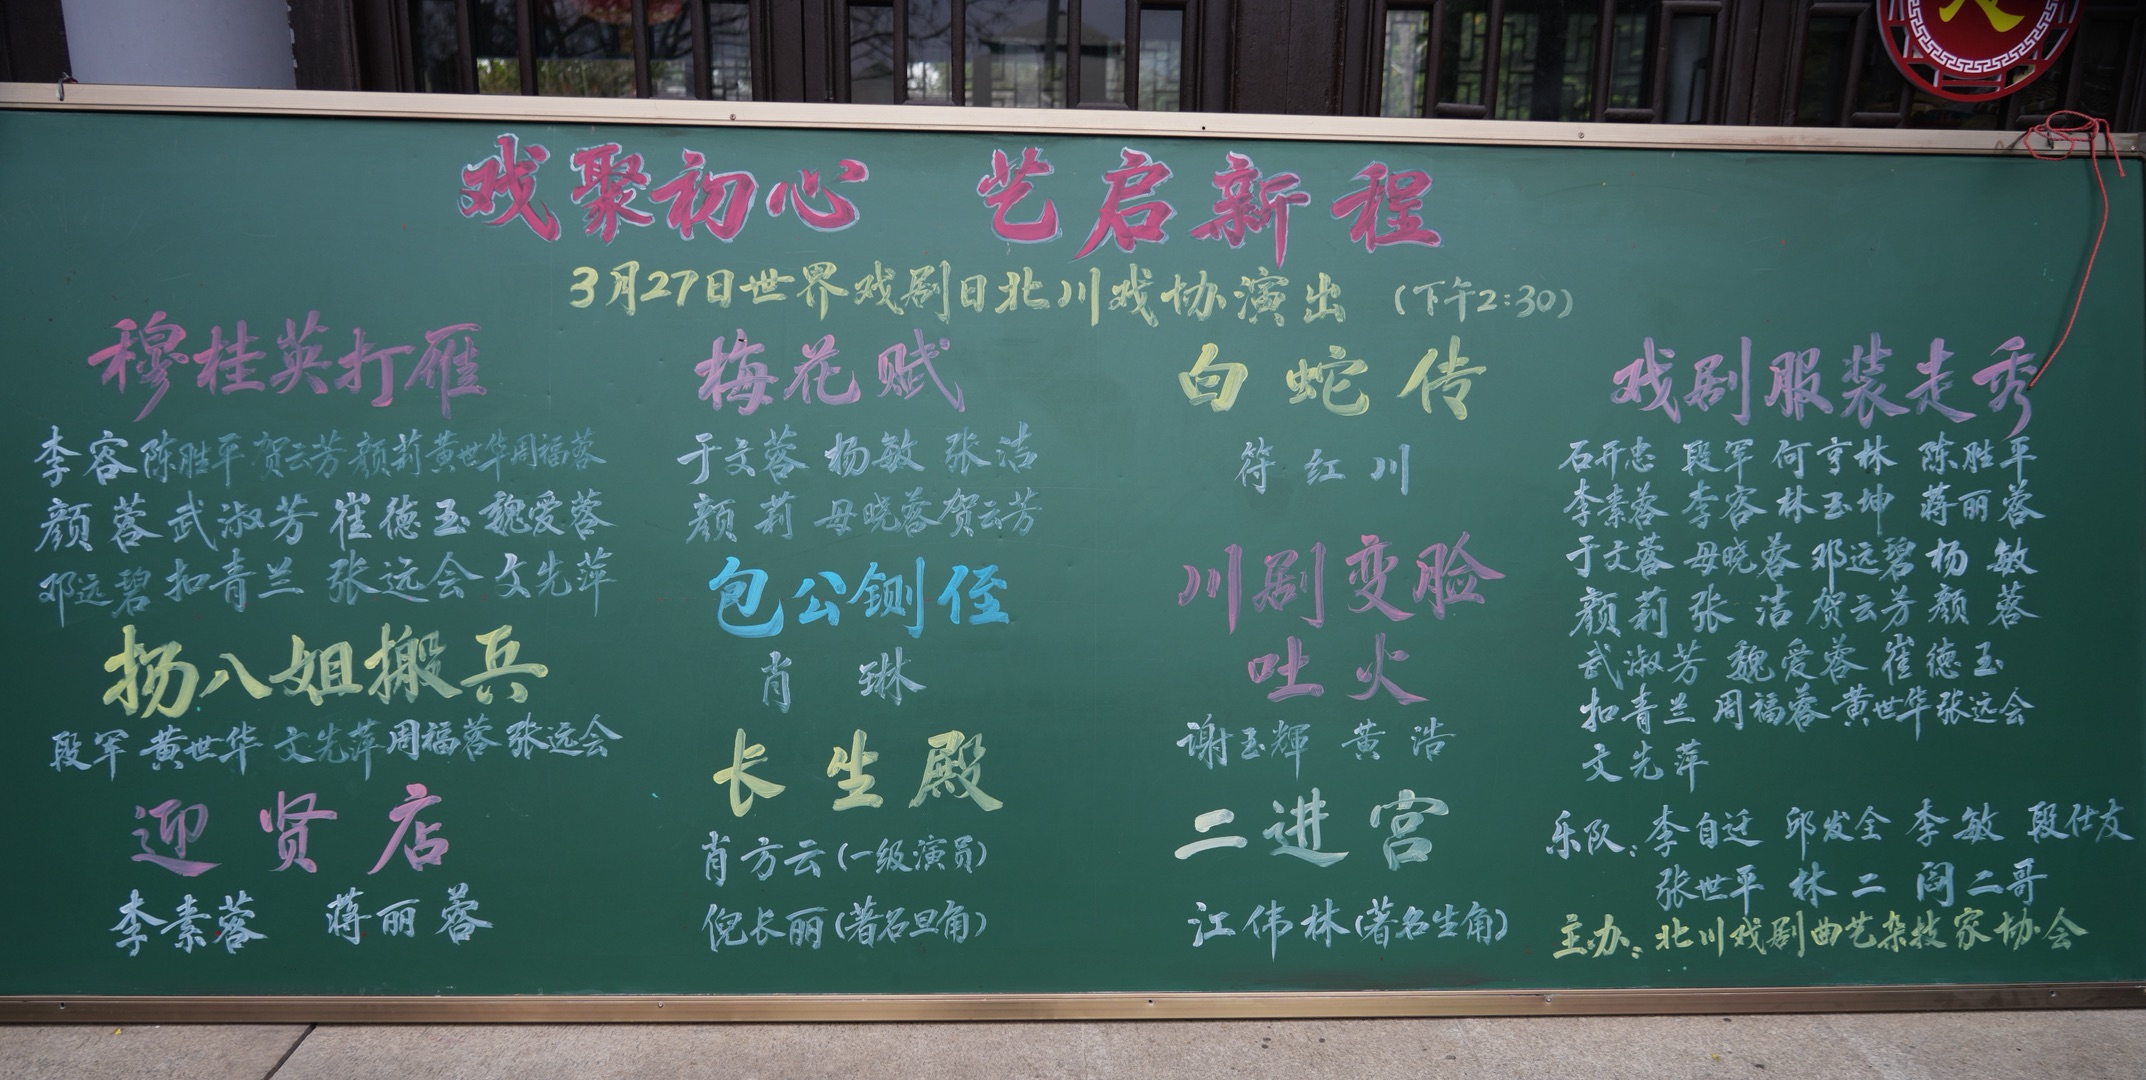 戏聚初心 艺启新程
3月27日世界戏剧日北川戏协演出 (下午2:30)
穆桂英打雁
李容 陈胜平 贺云芳 颜莉 黄世华 周福蓉
颜蓉 武淑芳 崔德玉 魏爱蓉
邓远碧 扣青兰 张远会 文先萍
扬八姐搬兵
段军 黄世华 文先萍 周福蓉 张远会
迎贤店
李素蓉 蒋丽蓉
梅花赋
于文蓉 杨敏 张洁
颜莉 母晓蓉 贺云芳
包公铡侄
肖琳
长生殿
肖方云(一级演员)
倪长丽(著名旦角)
白蛇传
符红川
川剧变脸
吐火
谢玉辉 黄浩
二进宫
江伟林(著名生角)
戏剧服装走秀
石开忠 段军 何亨林 陈胜平
李素蓉 李容 林玉坤 蒋丽蓉
于文蓉 母晓蓉 邓远碧 杨敏
颜莉 张洁 贺云芳 颜蓉
武淑芳 魏爱蓉 崔德玉
扣青兰 周福蓉 黄世华 张远会
文先萍
乐队:李自迁 邱发全 李敏 段仕友
张世平 林二 阎二哥
主办:北川戏剧曲艺杂技家协会